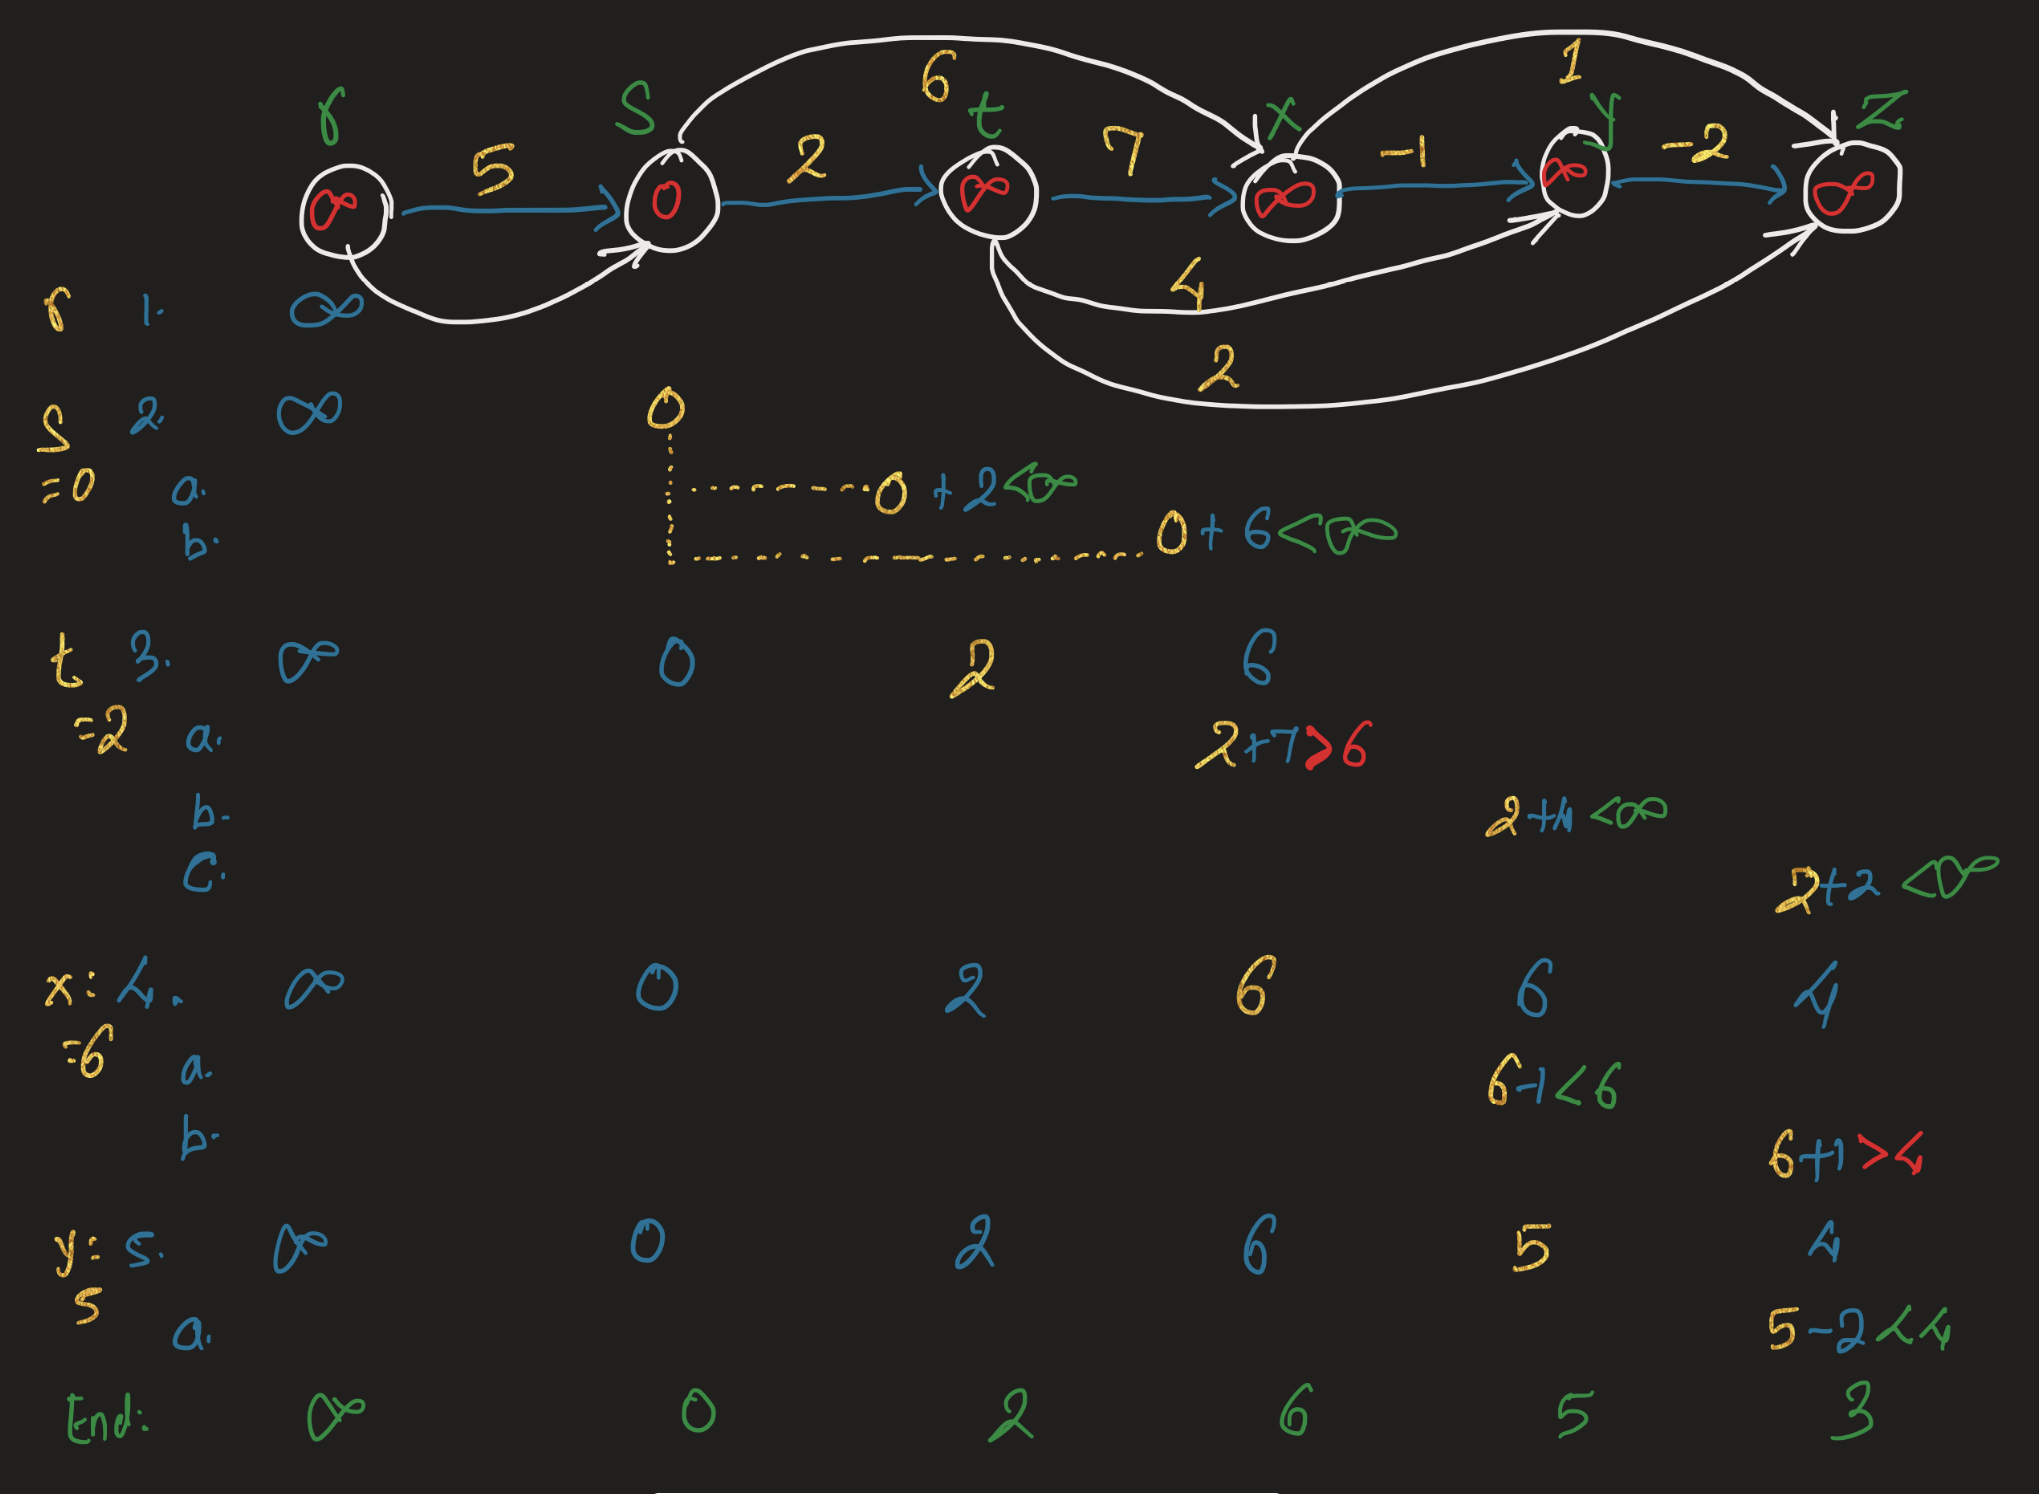 6 1
r S t x y z
5 2 7 -1 -2
∞ 0 ∞ ∞ ∞ ∞
4
r 1. ∞
2
S 2. ∞ 0
=0 a. 0 + 2 <∞
b. 0 + 6 <∞
t 3. ∞ 0 2 6
=2 a. 2+7>6
b. 2+4 <∞
c. 2+2 <∞
x: 4. ∞ 0 2 6 6 4
=6 a. 6-1<6
b. 6+1>4
y: 5. ∞ 0 2 6 5 4
5 a. 5-2<4
End: ∞ 0 2 6 5 3